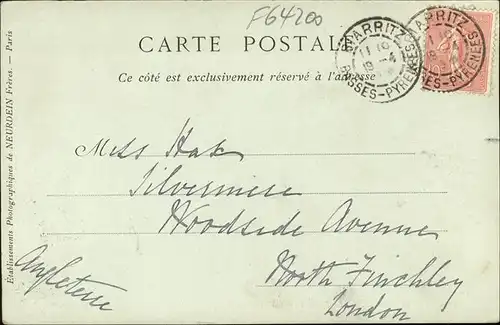 F64200
CARTE POSTALE
Ce côté est exclusivement réservé à l'adresse
BIARRITZ
BASSES-PYRÉNÉES
BIARRITZ
BASSES-PYRÉNÉES
Miss Hak
Silvermere
Woodside Avenue
North Finchley
London
Angleterre
Etablissements Photographiques de NEURDEIN Frères. — Paris